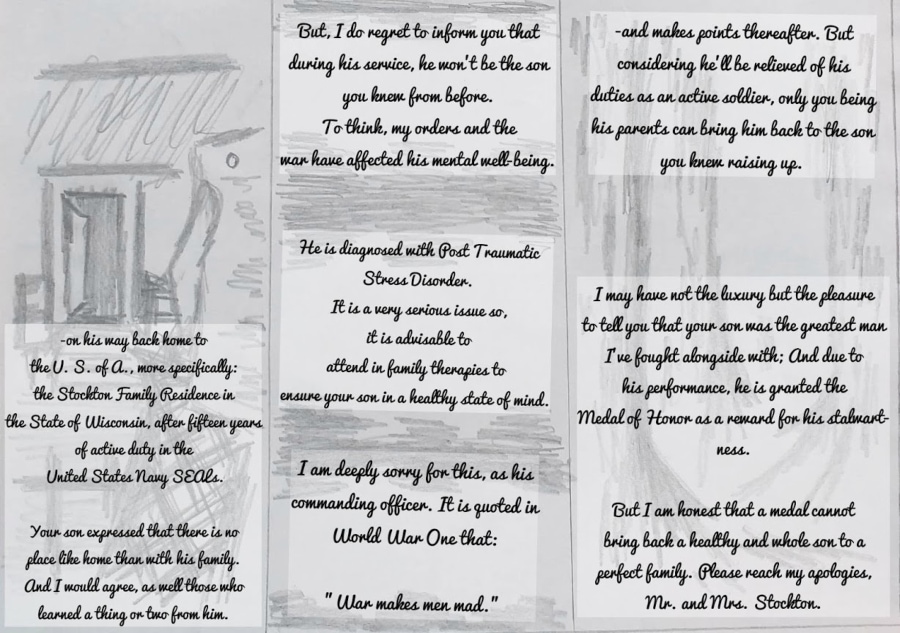 -on his way back home to
the U. S. of A., more specifically:
the Stockton Family Residence in
the State of Wisconsin, after fifteen years
of active duty in the
United States Navy SEALs.
Your son expressed that there is no
place like home than with his family.
And I would agree, as well those who
learned a thing or two from him.
But, I do regret to inform you that
during his service, he won't be the son
you knew from before.
To think, my orders and the
war have affected his mental well-being.
He is diagnosed with Post Traumatic
Stress Disorder.
It is a very serious issue so,
it is advisable to
attend in family therapies to
ensure your son in a healthy state of mind.
I am deeply sorry for this, as his
commanding officer. It is quoted in
World War One that:
" War makes men mad."
-and makes points thereafter. But
considering he'll be relieved of his
duties as an active soldier, only you being
his parents can bring him back to the son
you knew raising up.
I may have not the luxury but the pleasure
to tell you that your son was the greatest man
I've fought alongside with; And due to
his performance, he is granted the
Medal of Honor as a reward for his stalwart-
ness.
But I am honest that a medal cannot
bring back a healthy and whole son to a
perfect family. Please reach my apologies,
Mr. and Mrs. Stockton.